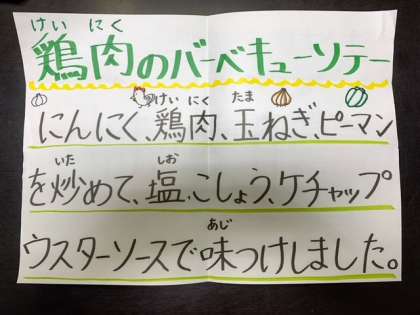 けい にく
鶏肉のバーベキューソテー
けい にく たま
にんにく、鶏肉、玉ねぎ、ピーマン
いた しお
を炒めて、塩、こしょう、ケチャップ
あじ
ウスターソースで味つけしました。